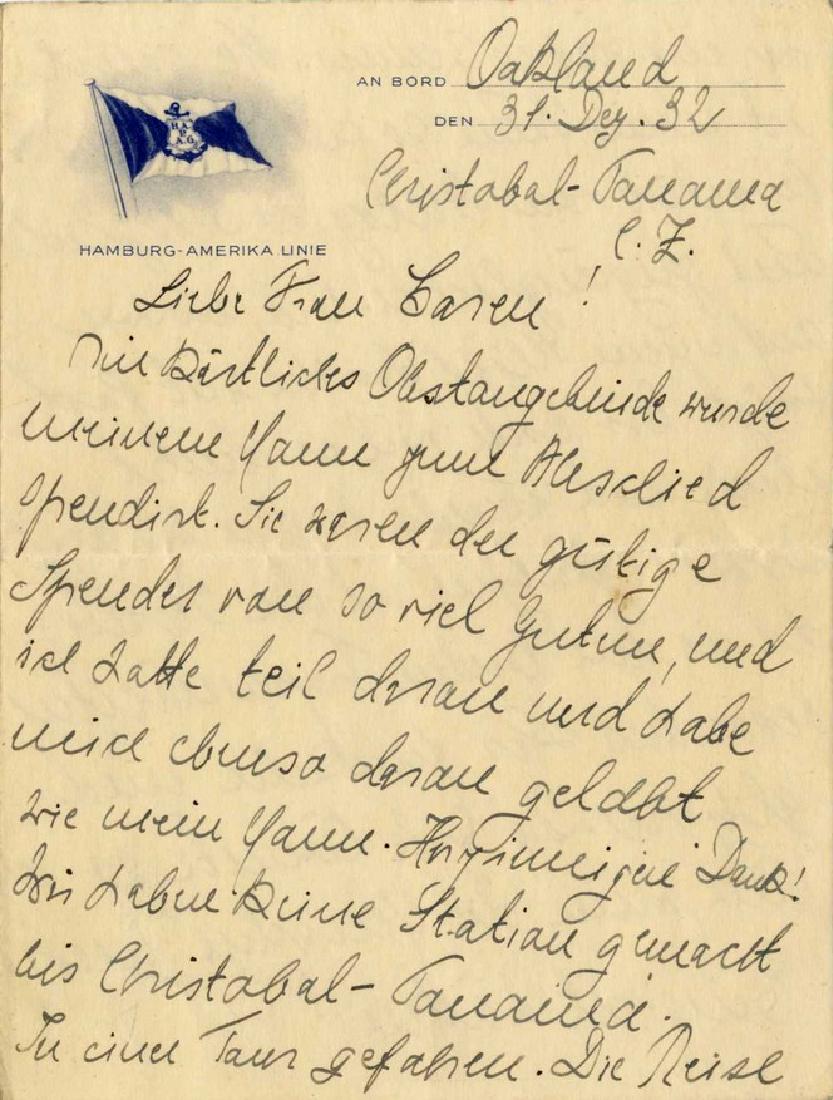 AN BORD Oakland
DEN 31. Dez. 32
Christobal-Panama
C. Z.
H A P A.G.
HAMBURG-AMERIKA LINIE
Liebe Frau !
Ein köstliches Obstangebinde wurde
meinem Mann zum Abschied
spendirt. Sie waren der gütige
Spender von so viel Gutem, und
ich hatte teil daran und habe
mich ebenso daran gelabt
wie mein Mann. Herzinnigen Dank!
Wir haben keine Station gemacht
bis Christobal-Panama.
In einer Tour gefahren. Die Reise